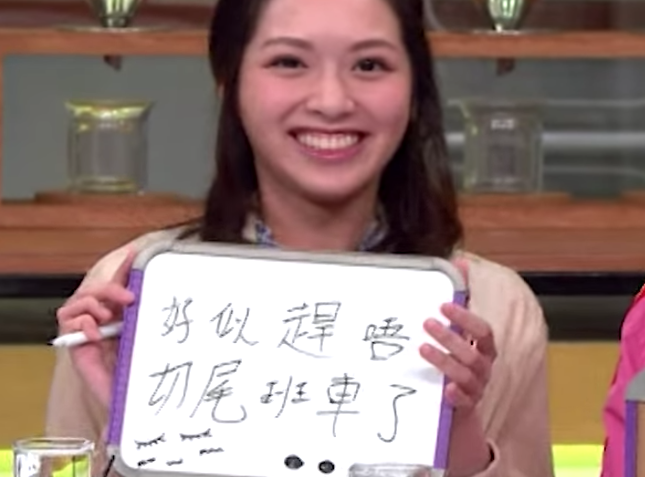 好似趕唔
切尾班車了